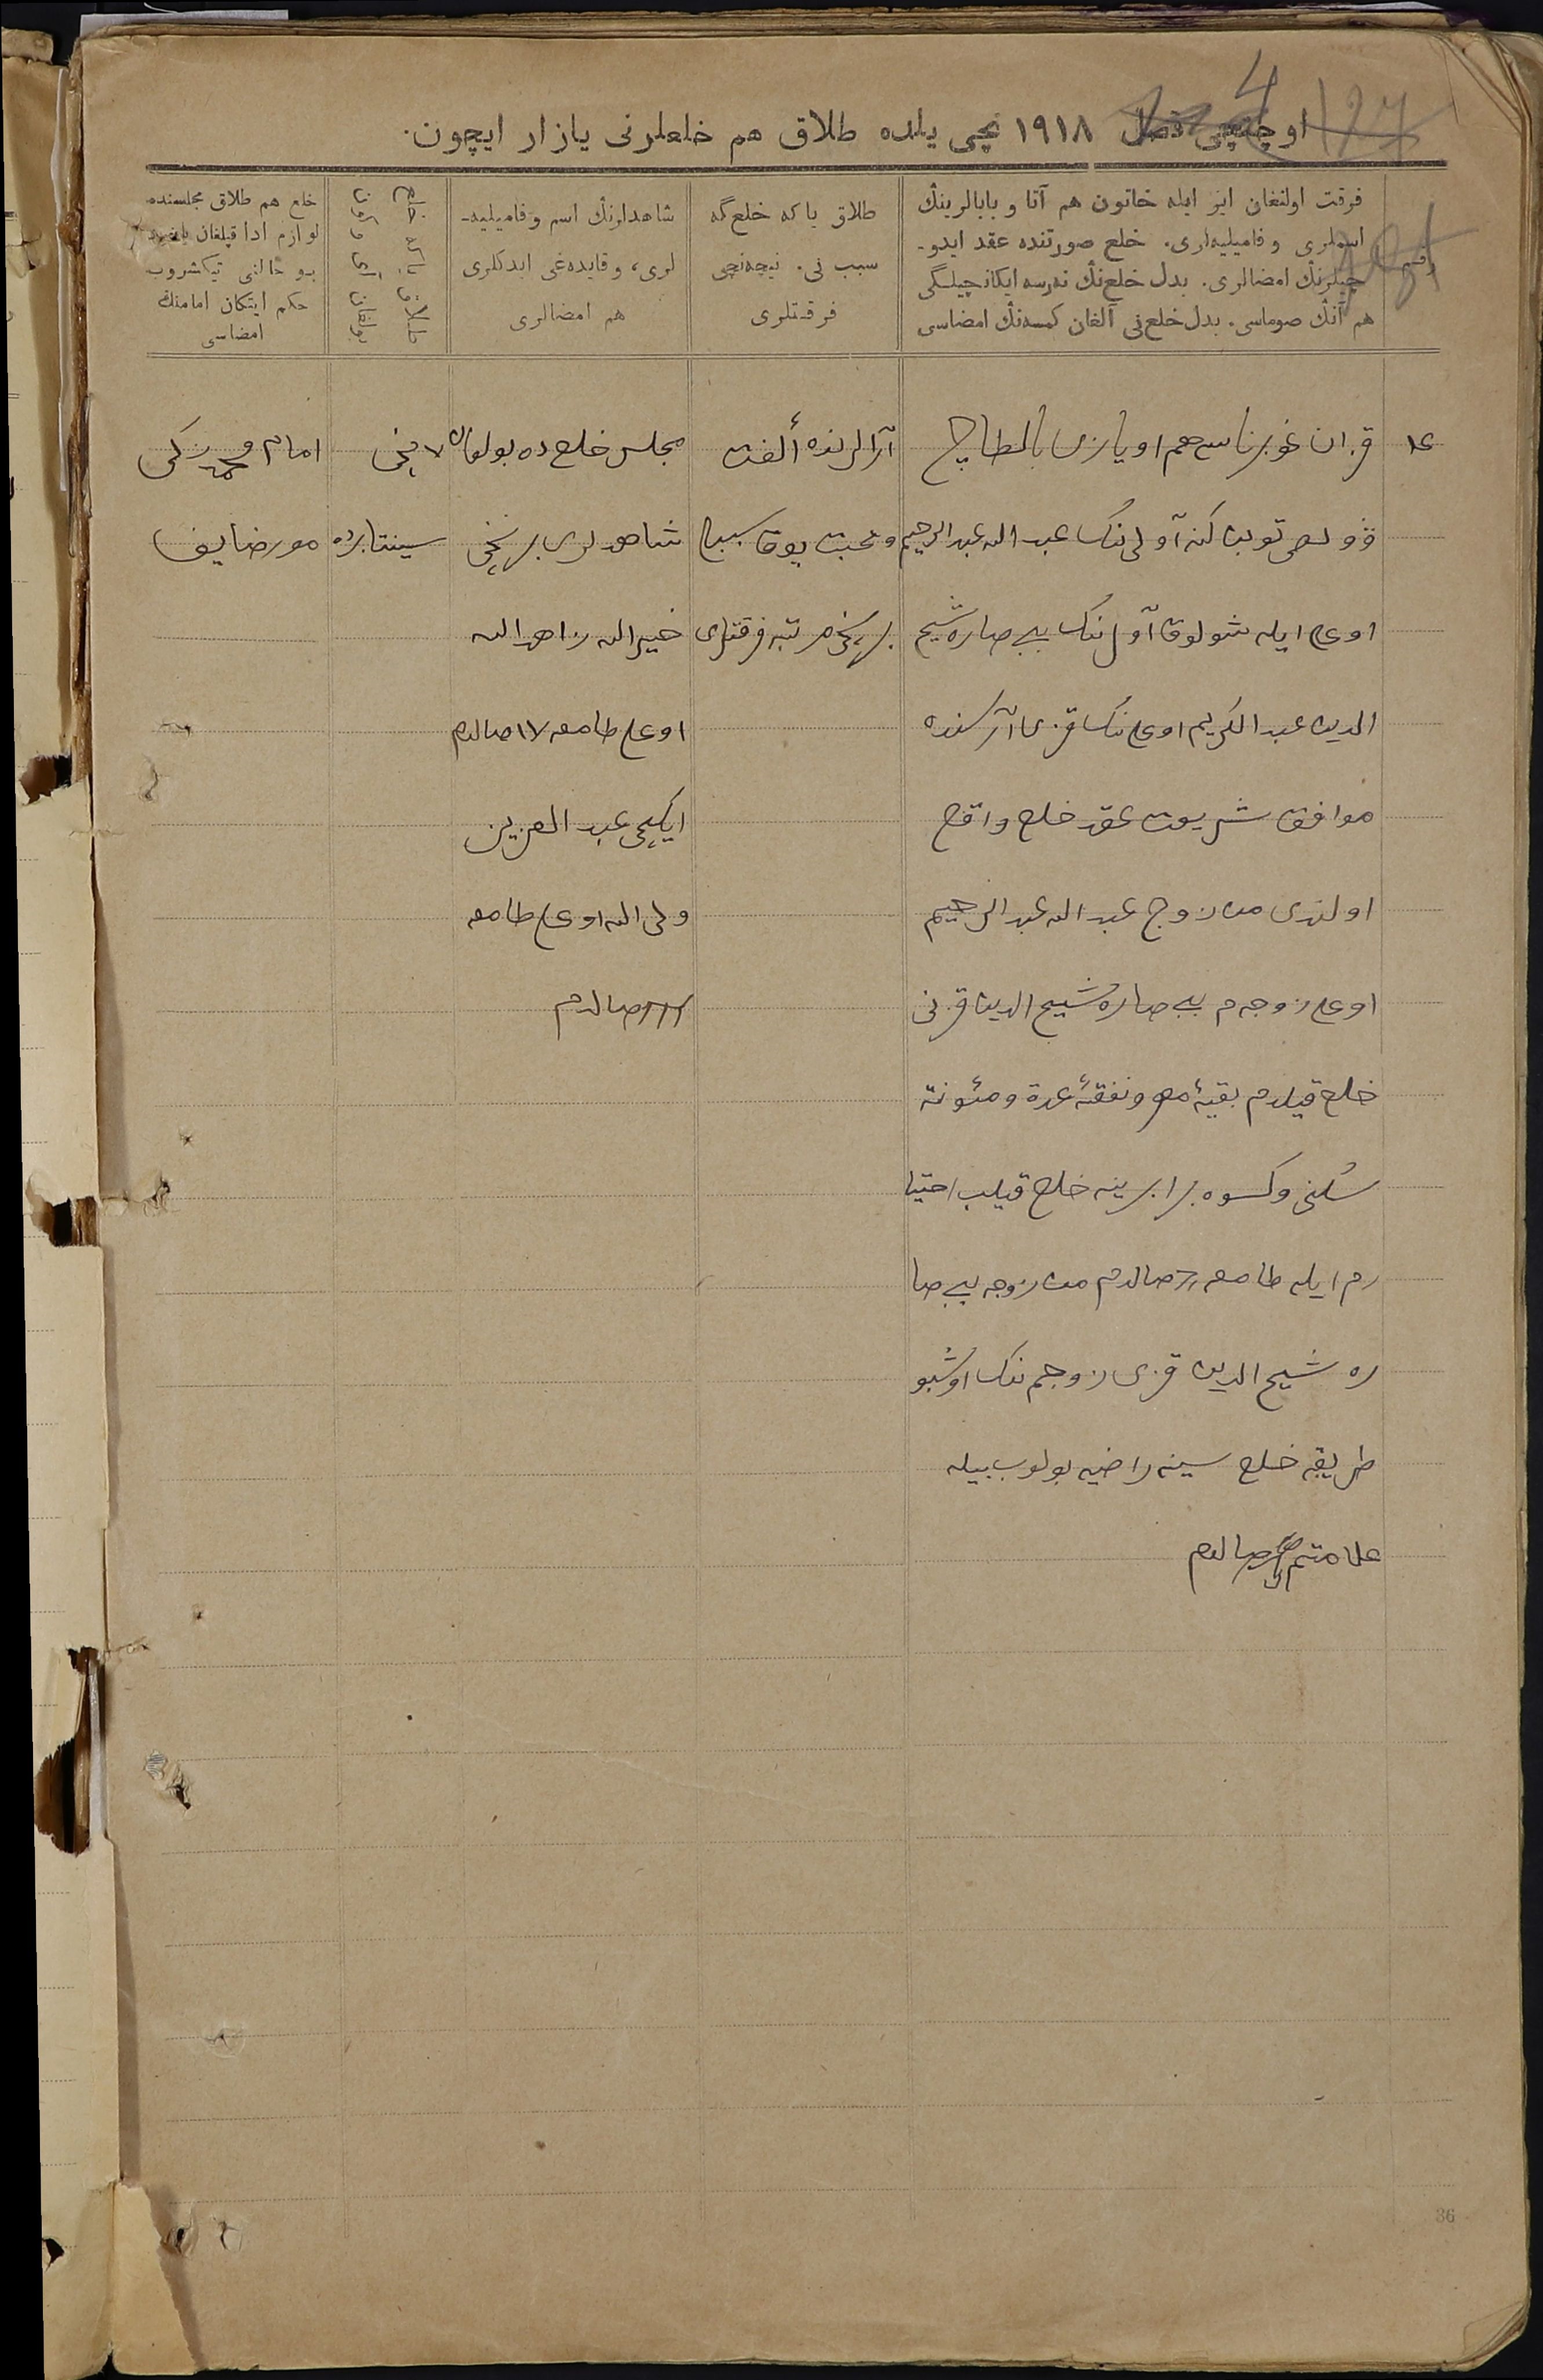 اوچنچی فصل ۱۹۱۸ نچی یلده طلاق هم خلعلرنی یازار ایچون.
127
4
رقم
فرقت اولنغان ایر ایله خاتون هم آتا و بابالرینڭ
اسملری و فامیلیه‌لری. خلع صورتنده عقد ایدو-
چیلرنڭ امضالری. بدل خلع‌نڭ نه‌رسه ایکانچیلگی
هم آنڭ صوماسی. بدل خلع‌نی آلغان کمسه‌نڭ امضاسی
طلاق یا که خلع گه
سبب نی. نیچه‌نچی
فرقتلری
شاهدلرنڭ اسم و فامیلیه-
لری، و قایده‌غی ایدکلری
هم امضالری
طلاق یا که خلع
بولغان آی و کون
خلع هم طلاق مجلسنده
لوازم ادا قیلغان
بو حالنی تیکشروب
حکم ایتکان امامنڭ
امضاسی
قزان غوبرناسی هم اویازی بالطاچ
وولصی توبان کنه آولی ننک عبدالله عبدالرحیم
اوغلی ایله شولوق آول ننک بیبی صاره شیخ
الدین عبدالکریم اوغلی ننک قزی آراسنده
موافق شریعت عقد خلع واقع
اولندی من زوج عبدالله عبدالرحیم
اوغلی زوجه م بیبی صاره شیخ الدین قزنی
خلع قیلدم بقیۀ مهر و نفقۀ عدة و مئونة
سکنی و کسوه برابرینه خلع قیلب اختیا
رم ایله طامغه صالدم من زوجه بیبی صا
ره شیخ الدین قزی زوجم ننک اوشبو
طریقه خلع سینه راضیه بولوب بیله
علامتم صالدم
آرالرنده ألفت
و محبت یوق سببلی
برنچی مرتبه فرقتلری
مجلس خلع ده بولغان
شاهدلری برنچی
خیرالله زاهدالله
اوغلی طامغه صالدم
ایکنچی عبدالعزیز
ولی الله اوغلی طامغه
صالدم
۷ نچی
سینتابرده
امام محمد زکی
مورضایف
36